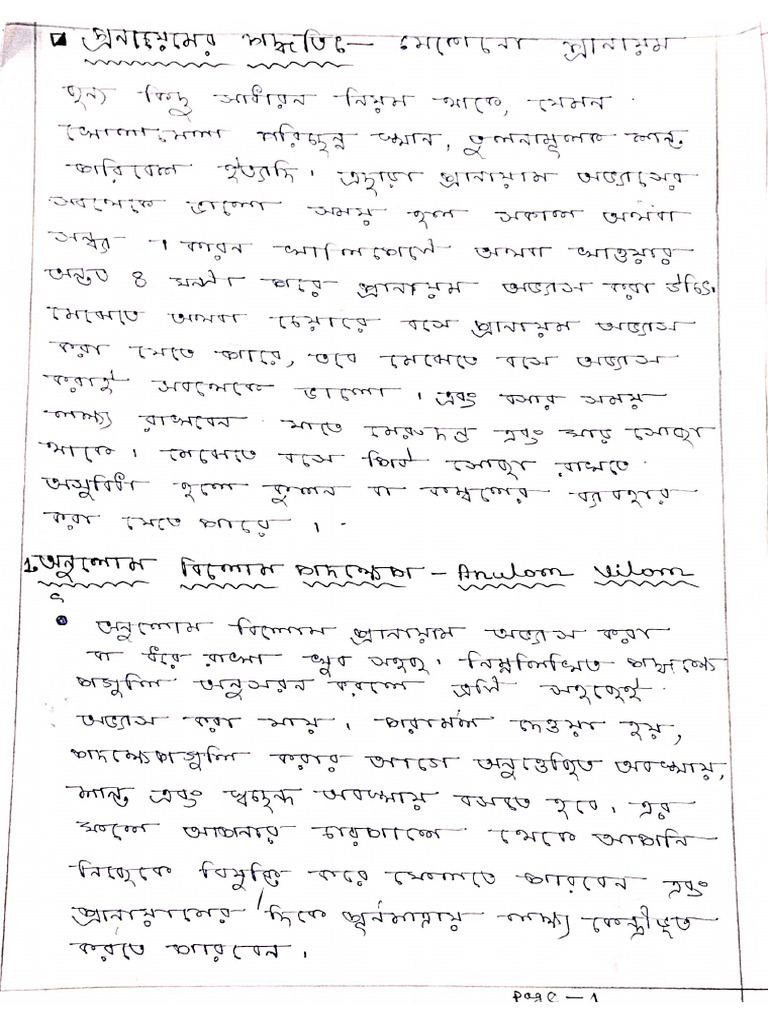 প্রনায়েমের পদ্ধতিঃ- যেকোনো প্রানায়ম
হন্য কিছু সাধারন নিয়ম থাকে, যেমন
খোলামেলা পরিচ্ছন্ন স্থান, তুলনামূলক শান্ত
পরিবেশ ইত্যাদি। এছারা প্রানায়াম অভ্যাসের
সবথেকে ভালো সময় হল সকাল অথবা
সন্ধ্যা। কারন খালিপেটে অথবা খাওয়ার
অন্তত ৪ ঘন্টা পরে প্রানায়ম অভ্যাস করা উচিত।
মেঝেতে অথবা চেয়ারে বসে প্রানায়ম অভ্যাস
করা যেতে পারে, তবে মেঝেতে বসে অভ্যাস
করাই সবথেকে ভালো। এবং বসার সময়
লক্ষ্য রাখবেন যাতে মেরুদন্ড এবং ঘার সোজা
থাকে। মেঝেতে বসে পিঠ সোজা রাখতে
অসুবিধা হলে কুশন বা কম্বলের ব্যবহার
করা যেতে পারে।
1. অনুলোম বিলোম পদক্ষেপ - Anulom Vilom
অনুলোম বিলোম প্রানায়াম অভ্যাস করা
বা ধরে রাখা খুব সহজ। নিম্নলিখিত পদক্ষে
পগুলি অনুসরন করলে এটি সহজেই
অভ্যাস করা যায়। পরামর্শ দেওয়া হয়,
পদক্ষেপগুলি করার আগে অনুত্তেজিত অবস্থায়,
শান্ত এবং স্বচ্ছন্দ অবস্থায় বসতে হবে। এর
ফলে আপনার চারপাশে থেকে আপনি
নিজেকে বিযুক্তি করে ফেলতে পারবেন এবং
প্রানায়ামের দিকে পূর্নমাত্রায় লক্ষ্য কেন্দ্রীভূত
করতে পারবেন।
Page - 1